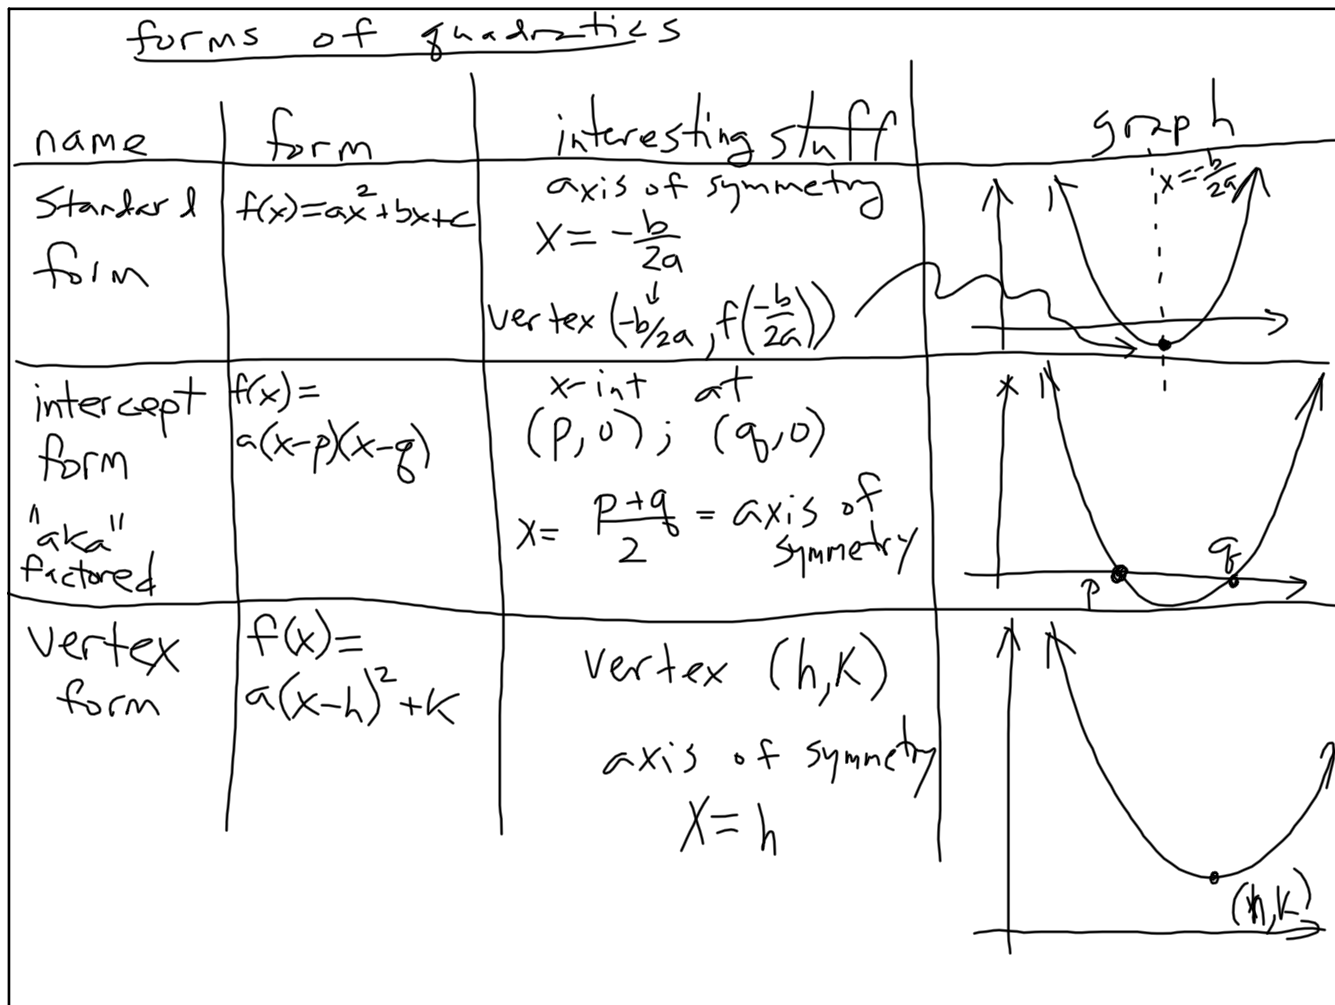 forms of quadratics
name form interesting stuff graph
Standard form
f(x)=ax²+bx+c
axis of symmetry
x = -b/2a
vertex (-b/2a, f(-b/2a))
x=-b/2a
intercept form
"aka" factored
f(x)=
a(x-p)(x-q)
x-int at
(p,0); (q,0)
x = p+q/2 = axis of symmetry
p q
vertex form
f(x)=
a(x-h)²+k
vertex (h,k)
axis of symmetry
x=h
(h,k)